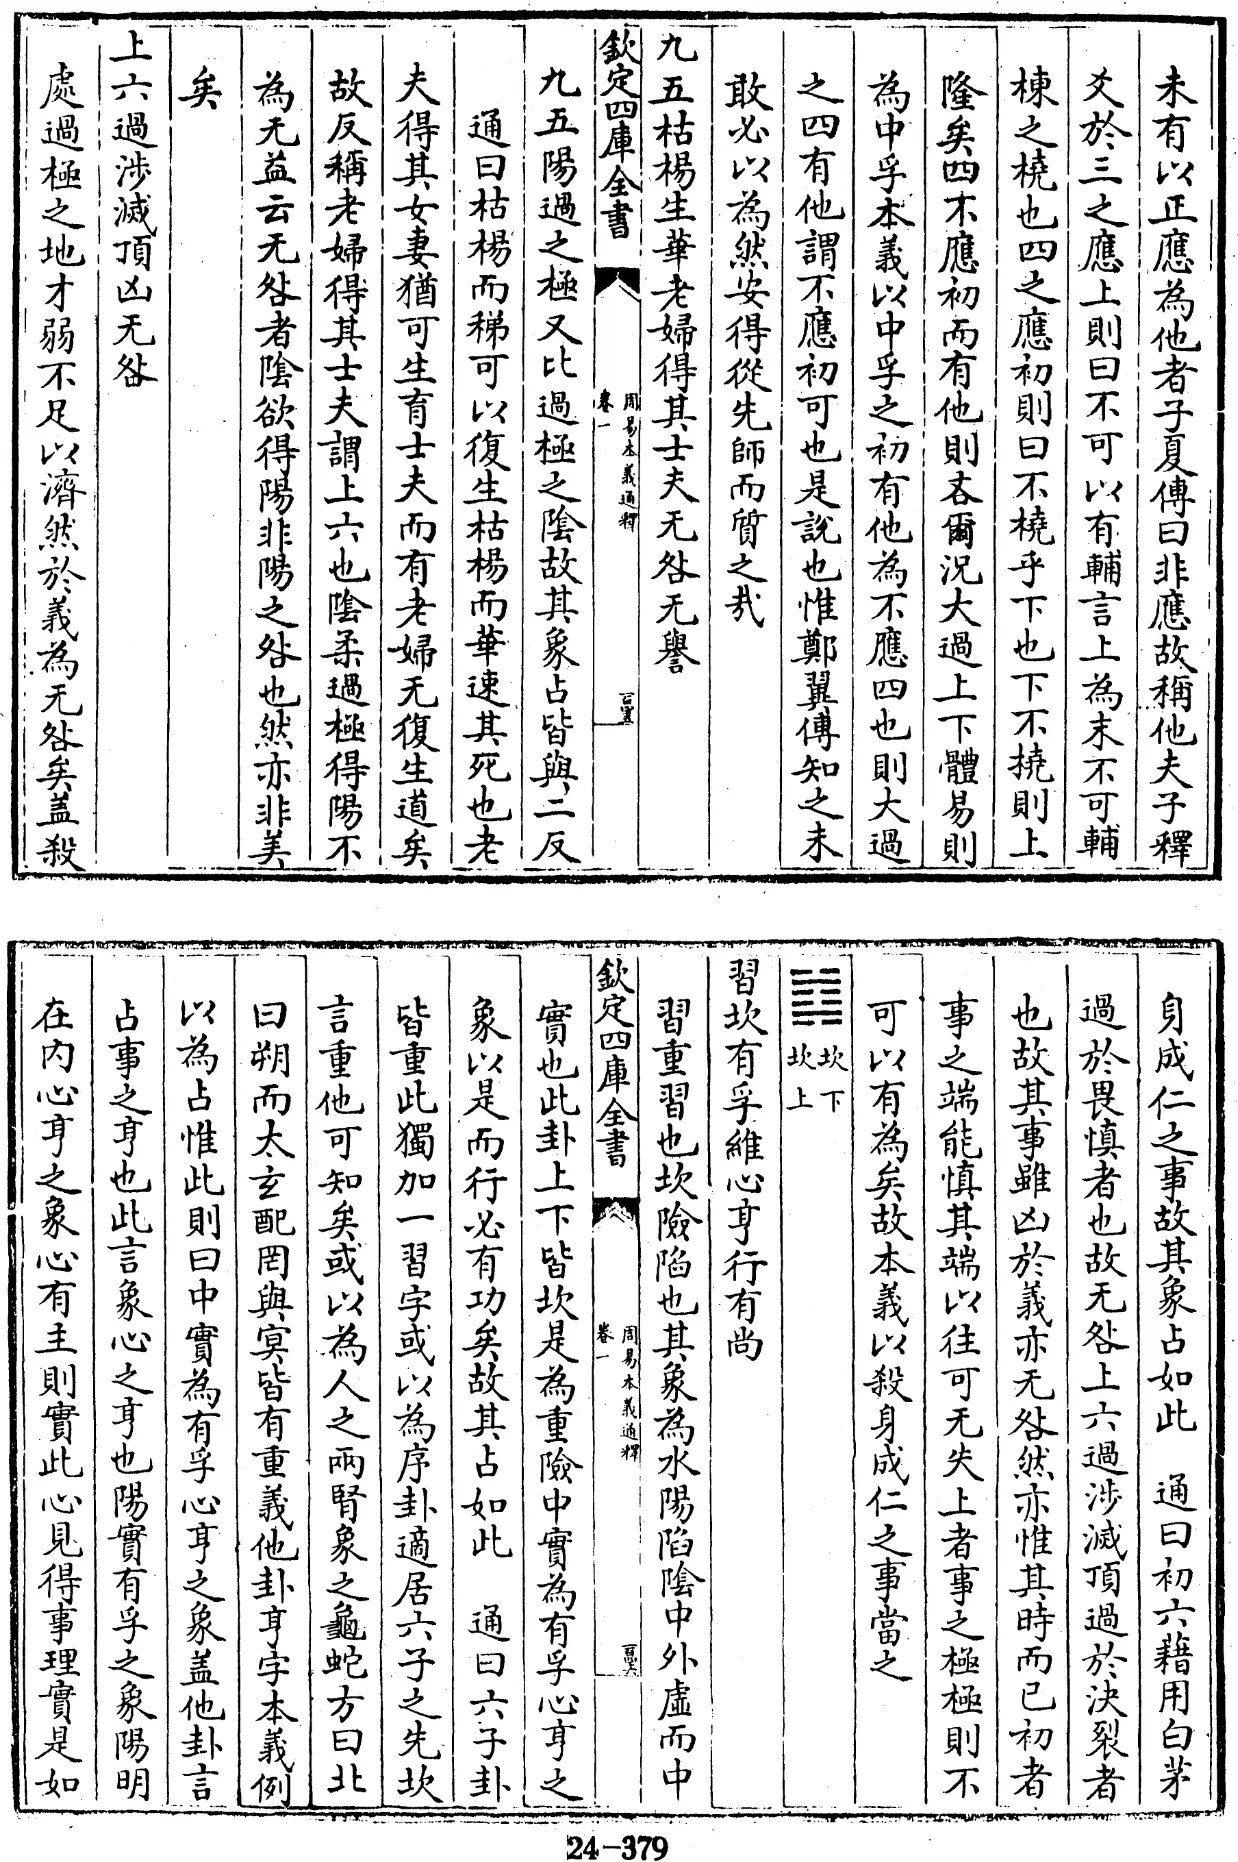 未有以正應為他者子夏傳曰非應故稱他夫子釋
爻於三之應上則曰不可以有輔言上為末不可輔
棟之橈也四之應初則曰不橈乎下也下不撓則上
隆矣四不應初而有他則吝爾況大過上下體易則
為中孚本義以中孚之初有他為不應四也則大過
之四有他謂不應初可也是說也惟鄭翼傳知之未
敢必以為然安得從先師而質之㢤
九五枯楊生華老婦得其士夫无咎无譽
欽定四庫全書
周易本義通釋
卷一
九五陽過之極又比過極之陰故其象占皆與二反
通曰枯楊而稊可以復生枯楊而華速其死也老
夫得其女妻猶可生育士夫而有老婦无復生道矣
故反稱老婦得其士夫謂上六也陰柔過極得陽不
為无益云无咎者陰欲得陽非陽之咎也然亦非美
矣
上六過涉滅頂凶无咎
處過極之地才弱不足以濟然於義為无咎矣盖殺
身成仁之事故其象占如此　通曰初六藉用白茅
過於畏慎者也故无咎上六過涉滅頂過於決裂者
也故其事雖凶於義亦无咎然亦惟其時而已初者
事之端能慎其端以往可无失上者事之極極則不
可以有為矣故本義以殺身成仁之事當之
䷜坎下
坎上
習坎有孚維心亨行有尚
習重習也坎險陷也其象為水陽陷陰中外虛而中
欽定四庫全書
周易本義通釋
卷一
實也此卦上下皆坎是為重險中實為有孚心亨之
象以是而行必有功矣故其占如此　通曰六子卦
皆重此獨加一習字或以為序卦適居六子之先坎
言重他可知矣或以為人之兩腎象之龜蛇方曰北
曰朔而太玄配罔與冥皆有重義他卦亨字本義例
以為占惟此則曰中實為有孚心亨之象盖他卦言
占事之亨也此言象心之亨也陽實有孚之象陽明
在内心亨之象心有主則實此心見得事理實是如
24-379